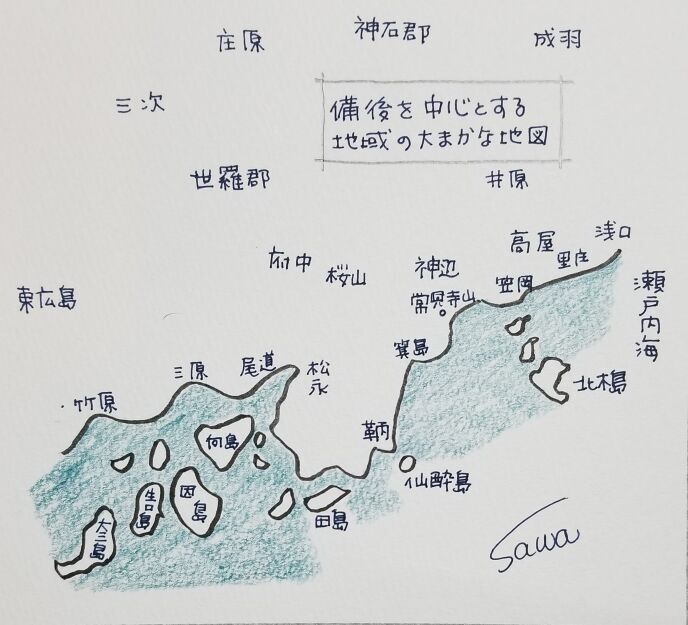 庄原
神石郡
成羽
三次
備後を中心とする
地域の大まかな地図
世羅郡
井原
高屋
浅口
里庄
府中
桜山
神辺
笠岡
常興寺山
東広島
瀬戸内海
箕島
三原
尾道
松永
北木島
竹原
向島
鞆
仙酔島
生口島
因島
田島
大三島
Sawa